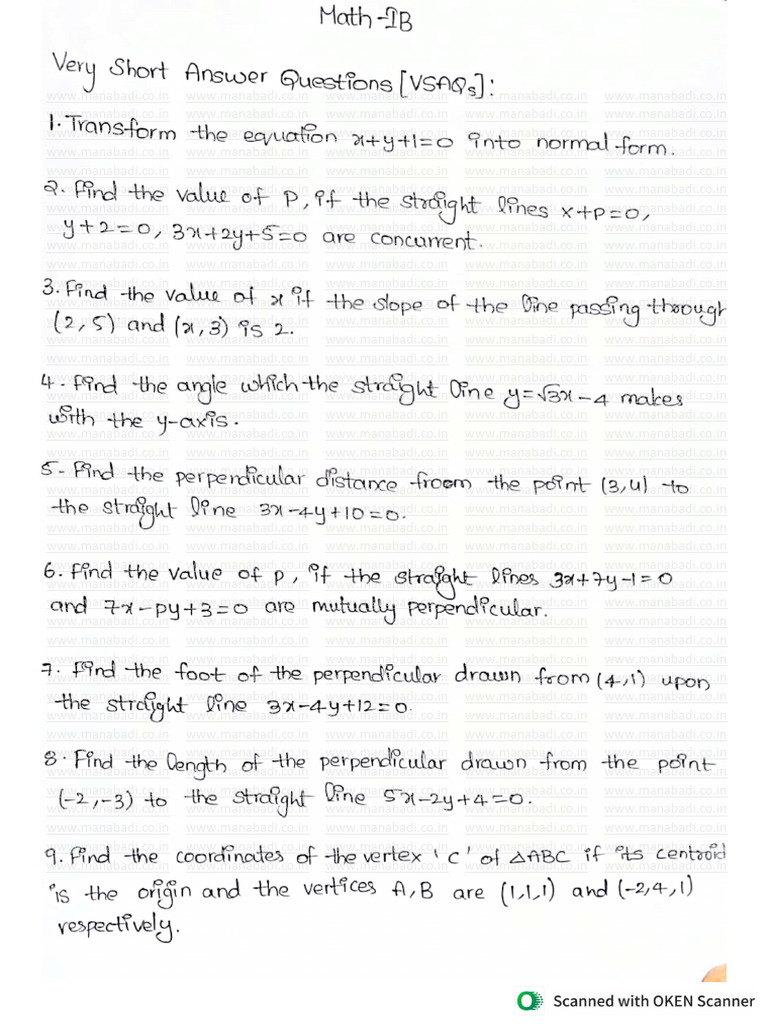 Math-IB
Very Short Answer Questions [VSAQs]:
1. Transform the equation x+y+1=0 into normal form.
2. Find the value of P, if the straight lines x+p=0,
y+2=0, 3x+2y+5=0 are concurrent.
3. Find the value of x if the slope of the line passing through
(2,5) and (x,3) is 2.
4. Find the angle which the straight line y=√3x-4 makes
with the y-axis.
5. Find the perpendicular distance from the point (3,4) to
the straight line 3x-4y+10=0.
6. Find the value of p, if the straight lines 3x+7y-1=0
and 7x-py+3=0 are mutually perpendicular.
7. Find the foot of the perpendicular drawn from (4,1) upon
the straight line 3x-4y+12=0.
8. Find the length of the perpendicular drawn from the point
(-2,-3) to the straight line 5x-2y+4=0.
9. Find the coordinates of the vertex 'C' of △ABC if its centroid
is the origin and the vertices A,B are (1,1,1) and (-2,4,1)
respectively.
Scanned with OKEN Scanner